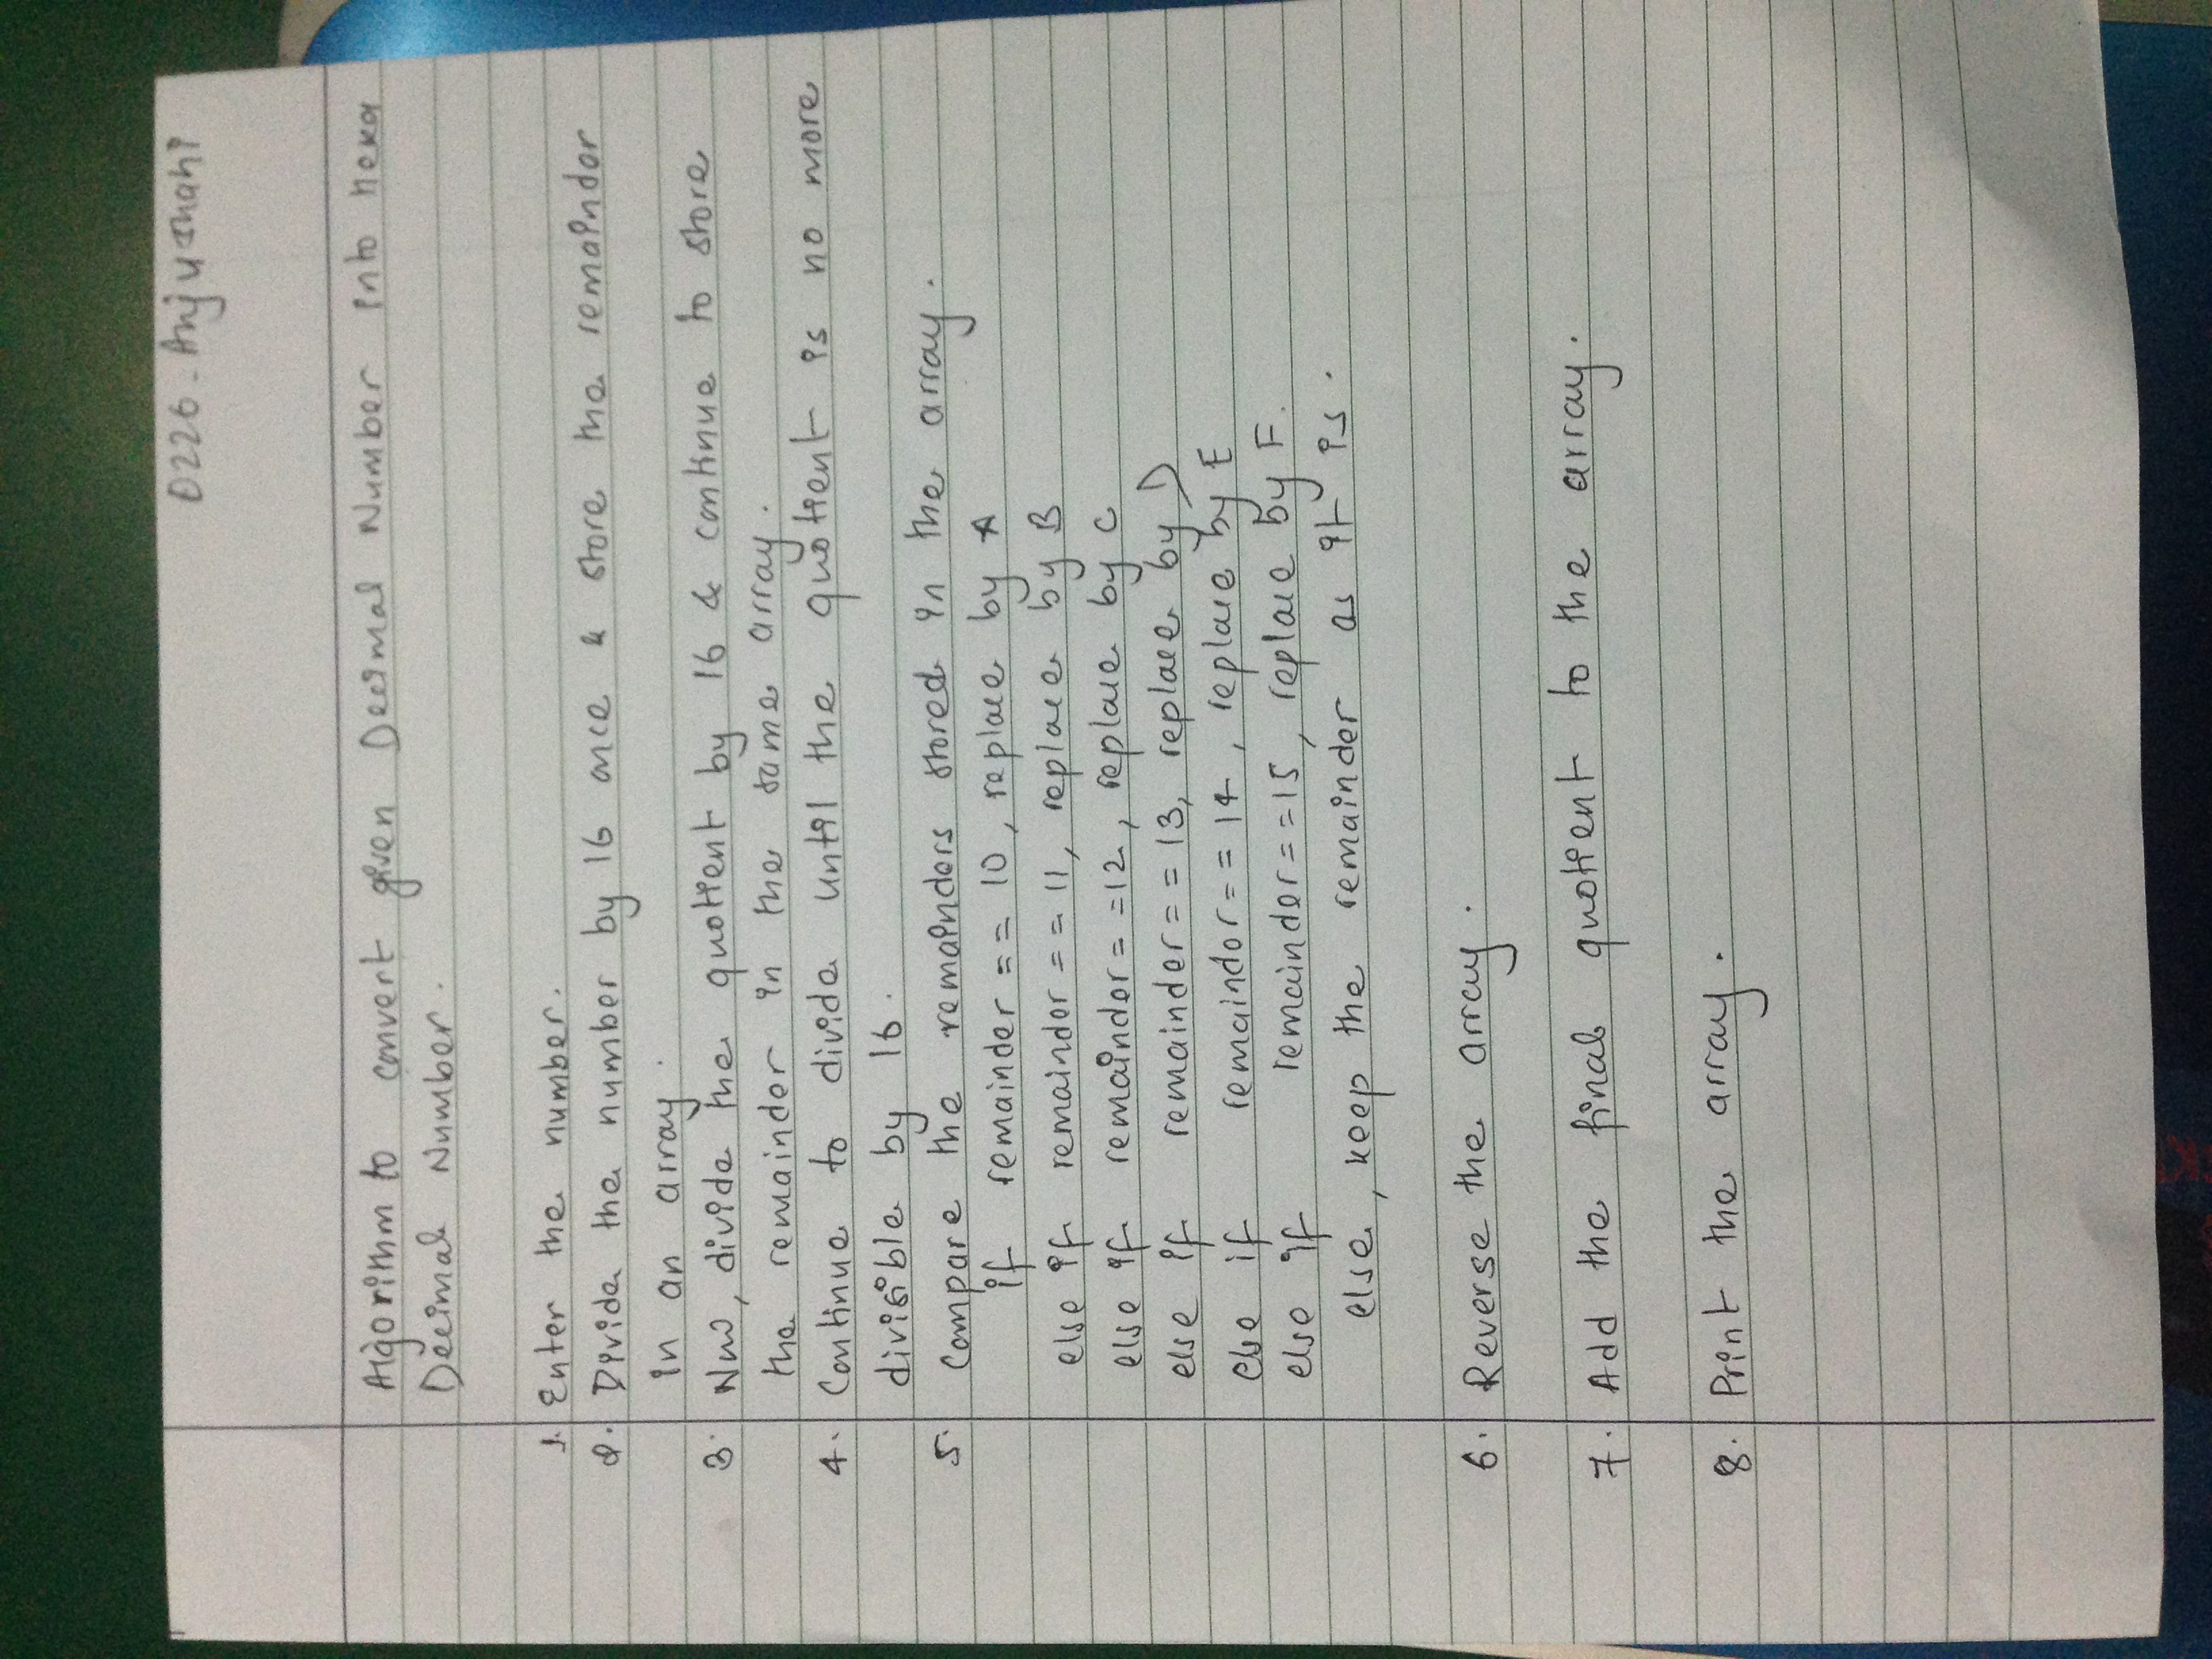 0226 - Anju Shahi
Algorithm to convert given Decimal Number into Hexa
Decimal Number.
1. Enter the number.
2. Divide the number by 16 once & store the remainder
in an array.
3. Now, divide the quotient by 16 & continue to store
the remainder in the same array.
4. Continue to divide until the quotient is no more
divisible by 16.
5. Compare the remainders stored in the array.
if remainder == 10, replace by A
else if remainder == 11, replace by B
else if remainder == 12, replace by C
else if remainder == 13, replace by D
else if remainder == 14, replace by E
else if remainder == 15, replace by F.
else, keep the remainder as it is.
6. Reverse the array.
7. Add the final quotient to the array.
8. Print the array.